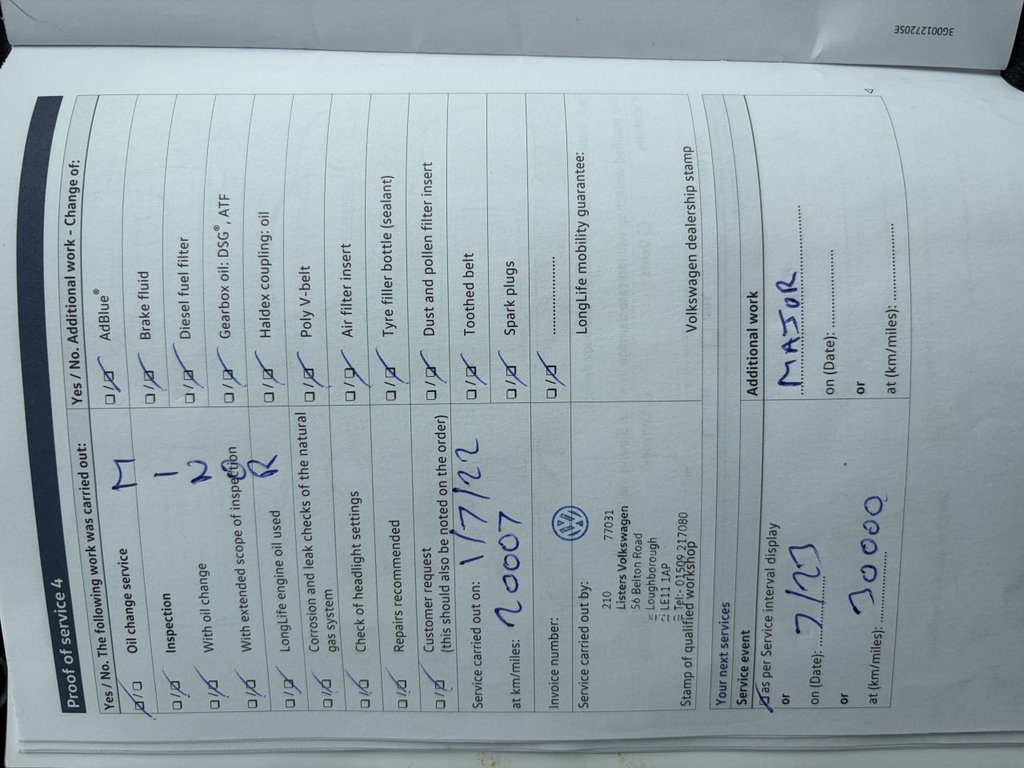 3G0012720SE
Proof of service 4
Yes / No. The following work was carried out:
☑/☐ Oil change service
☐/☑ Inspection
☐/☑ With oil change
☐/☑ With extended scope of inspection
☐/☑ LongLife engine oil used
☐/☑ Corrosion and leak checks of the natural
gas system
☐/☑ Check of headlight settings
☐/☑ Repairs recommended
☐/☑ Customer request
(this should also be noted on the order)
MINOR
Service carried out on: 1/7/22
at km/miles: 20007
Invoice number:
Service carried out by:
210 77031
Listers Volkswagen
56 Belton Road
Loughborough
LE11 1AP
Tel:- 01509 217080
Stamp of qualified workshop
Yes / No. Additional work - Change of:
☐/☑ AdBlue®
☐/☑ Brake fluid
☐/☑ Diesel fuel filter
☐/☑ Gearbox oil: DSG®, ATF
☐/☑ Haldex coupling: oil
☐/☑ Poly V-belt
☐/☑ Air filter insert
☐/☑ Tyre filler bottle (sealant)
☐/☑ Dust and pollen filter insert
☐/☑ Toothed belt
☐/☑ Spark plugs
☐/☑ ....................
LongLife mobility guarantee:
Volkswagen dealership stamp
Your next services
Service event
☑ as per Service interval display
or
on (Date): 7/23
or
at (km/miles): 30000
Additional work
MAJOR
on (Date): ....................
or
at (km/miles): ....................
4